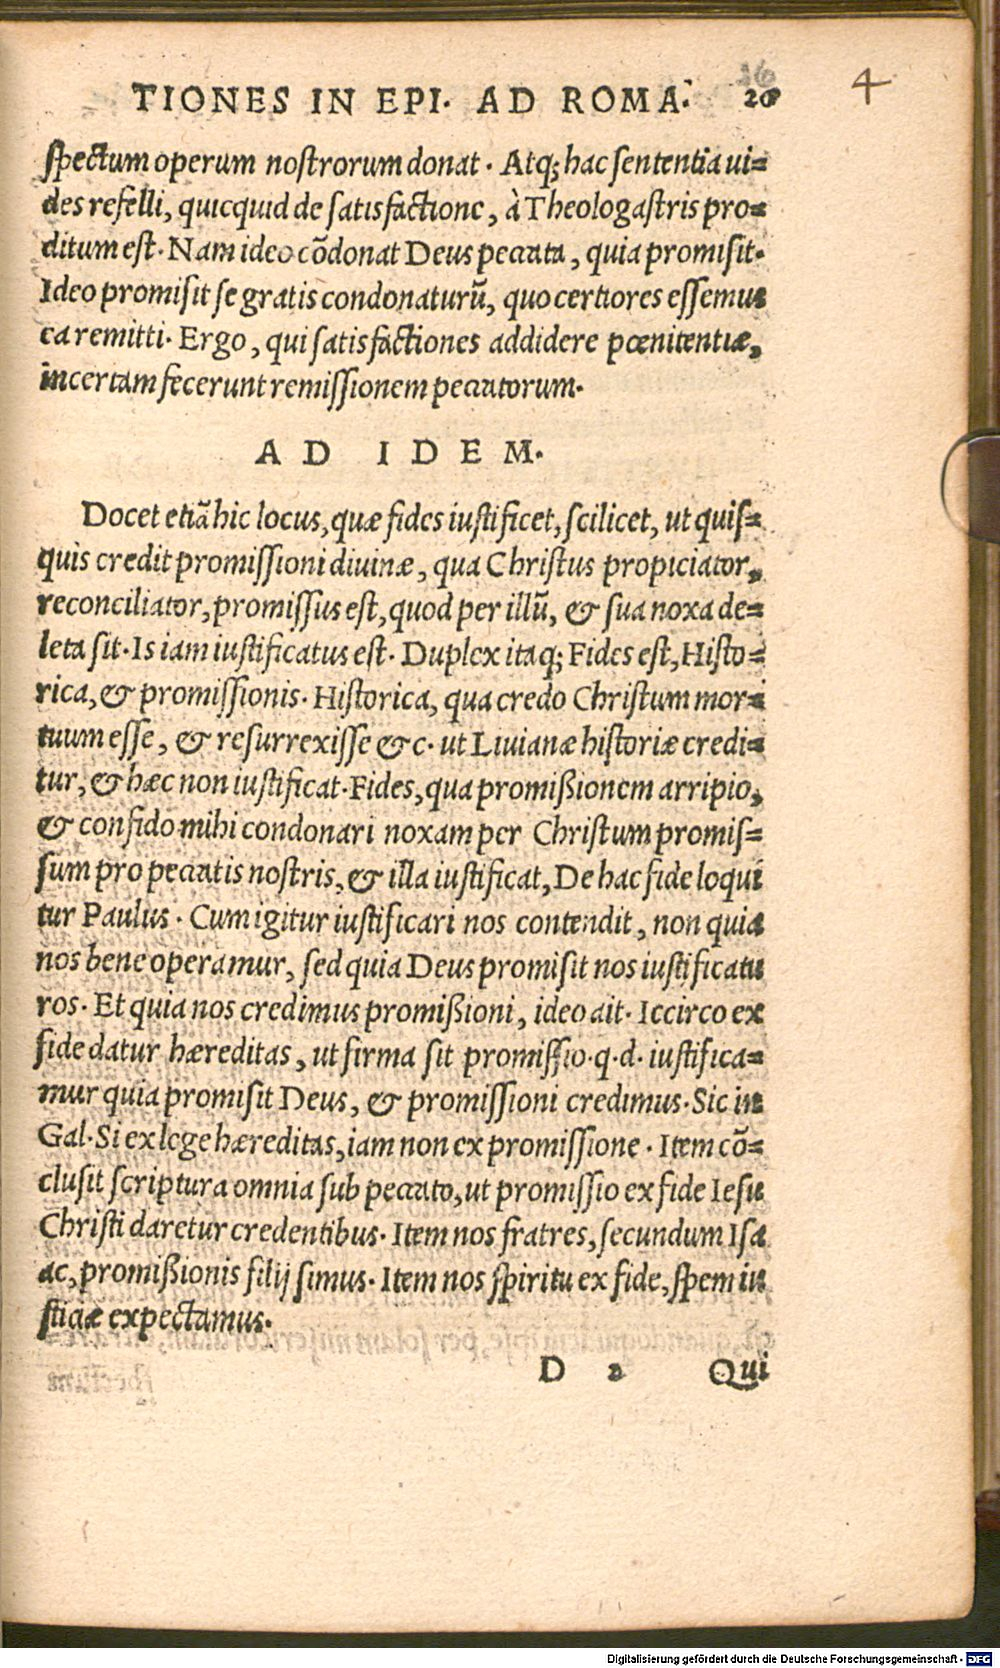 TIONES IN EPI. AD ROMA. 26
16
4
spectum operum nostrorum donat. Atq; hac sententia ui=
des refelli, quicquid de satisfactione, à Theologastris pro=
ditum est. Nam ideo cõdonat Deus peccata, quia promisit.
Ideo promisit se gratis condonaturũ, quo certiores essemus
ea remitti. Ergo, qui satisfactiones addidere pœnitentiæ,
incertam fecerunt remissionem peccatorum.
AD IDEM.
Docet etiã hic locus, quæ fides iustificet, scilicet, ut quis=
quis credit promissioni diuinæ, qua Christus propiciator,
reconciliator, promissus est, quod per illũ, & sua noxa de=
leta sit. Is iam iustificatus est. Duplex itaq; Fides est, Histo=
rica, & promissionis. Historica, qua credo Christum mor=
tuum esse, & resurrexisse &c. ut Liuianæ historiæ credi=
tur, & hæc non iustificat. Fides, qua promißionem arripio,
& confido mihi condonari noxam per Christum promis=
sum pro peccatis nostris, & illa iustificat, De hac fide loqui
tur Paulus. Cum igitur iustificari nos contendit, non quia
nos bene operamur, sed quia Deus promisit nos iustificatu
ros. Et quia nos credimus promißioni, ideo ait. Iccirco ex
fide datur hæreditas, ut firma sit promissio. q. d. iustifica=
mur quia promisit Deus, & promissioni credimus. Sic in
Gal. Si ex lege hæreditas, iam non ex promissione. Item cõ=
clusit scriptura omnia sub peccato, ut promissio ex fide Iesu
Christi daretur credentibus. Item nos fratres, secundum Isa
ac, promißionis filij simus. Item nos spiritu ex fide, spem iu
stitiæ expectamus.
D 2 Qui
Digitalisierung gefördert durch die Deutsche Forschungsgemeinschaft - DFG